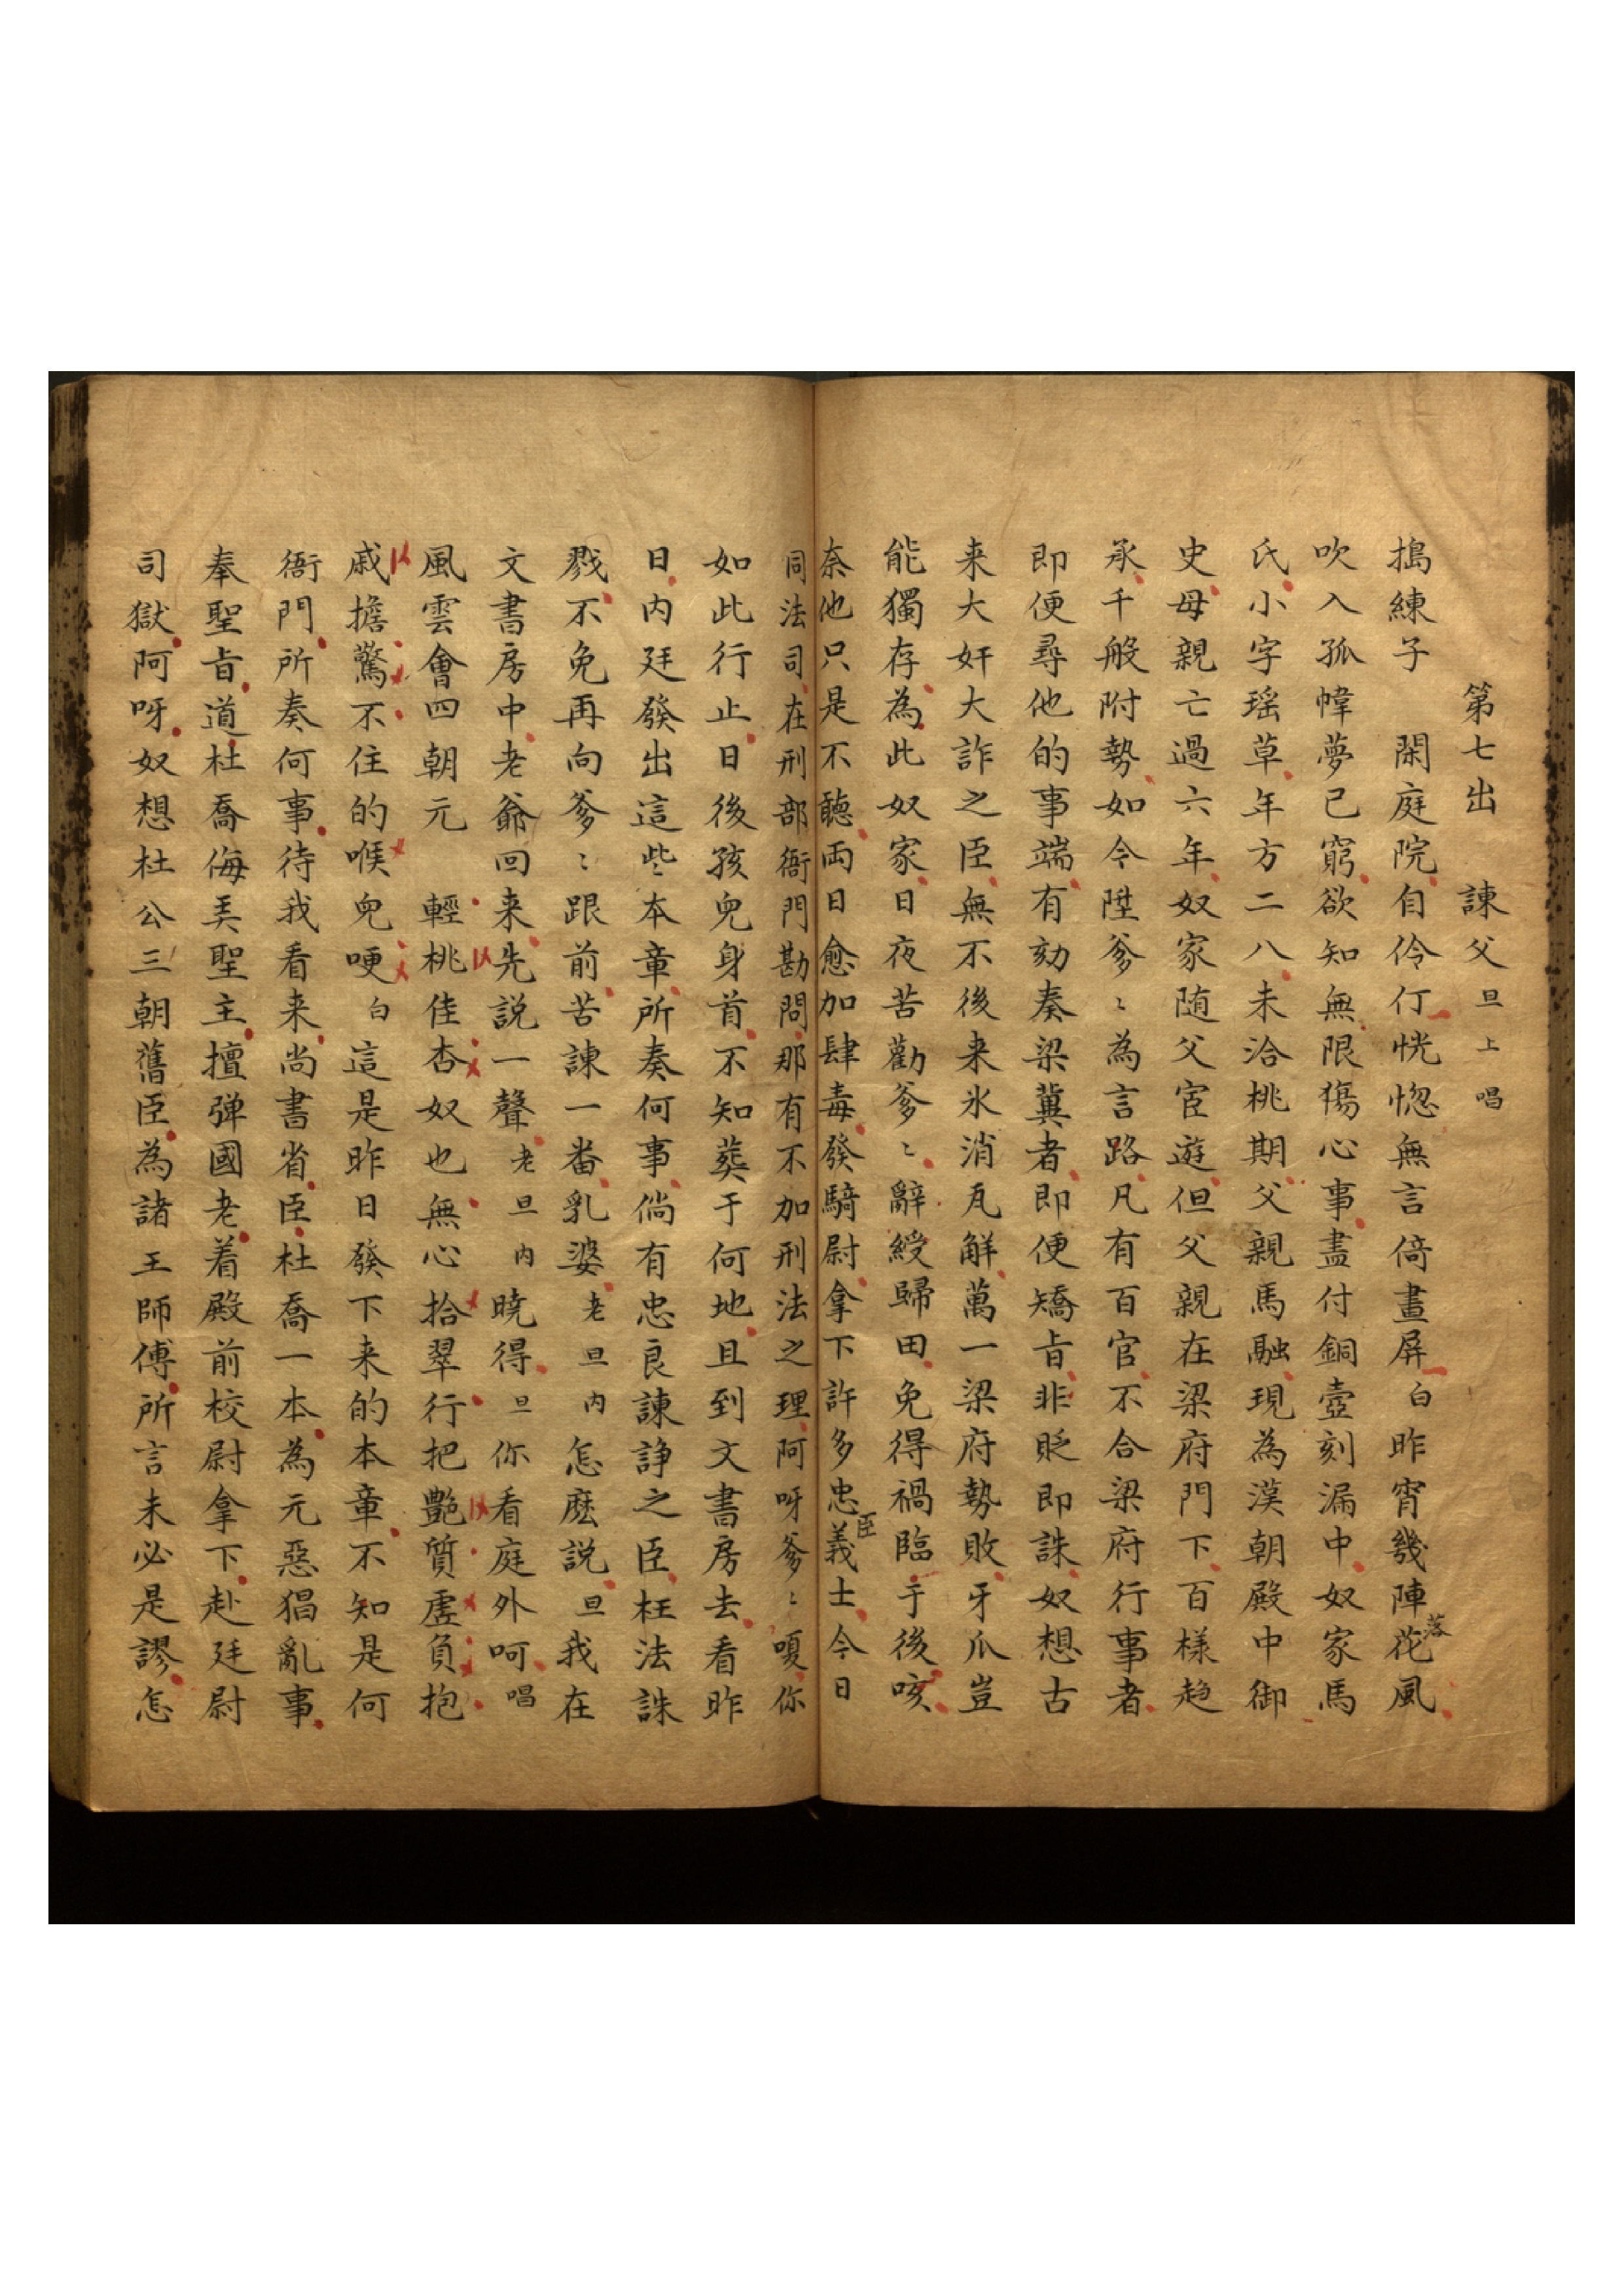 第七出　諫父 旦上 唱
搗練子　閑庭院自伶仃恍惚無言倚畫屏 白 昨宵幾陣落花風
吹入孤幃夢已窮欲知無限傷心事盡付銅壺刻漏中奴家馬
氏小字瑶草年方二八未洽桃期父親馬融現為漢朝殿中御
史母親亡過六年奴家随父宦遊但父親在梁府門下百樣趋
承千般附勢如今陞爹〻為言路凡有百官不合梁府行事者
即便尋他的事端有劾奏梁冀者即便矯旨非貶即誅奴想古
来大奸大詐之臣無不後来氷消瓦解萬一梁府勢敗牙爪豈
能獨存為此奴家日夜苦勸爹〻辭綬歸田免得禍臨于後咳
奈他只是不聽両日愈加肆毒發騎尉拿下許多忠臣義士今日
同法司在刑部衙門勘問那有不加刑法之理阿呀爹〻嗄你
如此行止日後孩兒身首不知葬于何地且到文書房去看昨
日内廷發出這些本章所奏何事倘有忠良諫諍之臣枉法誅
戮不免再向爹〻跟前苦諫一番乳婆 老旦内 怎麽説 旦 我在
文書房中老爺回来先説一聲 老旦内 曉得 旦 你看庭外呵 唱
風雲會四朝元　輕桃佳杏奴也無心拾翠行把艷質虛負抱
戚擔驚不住的喉兒哽 白 這是昨日發下来的本章不知是何
衙門所奏何事待我看来尚書省臣杜喬一本為元惡猖亂事
奉聖旨道杜喬侮弄聖主擅弹國老着殿前校尉拿下赴廷尉
司獄阿呀奴想杜公三朝舊臣為諸王師傅所言未必是謬怎